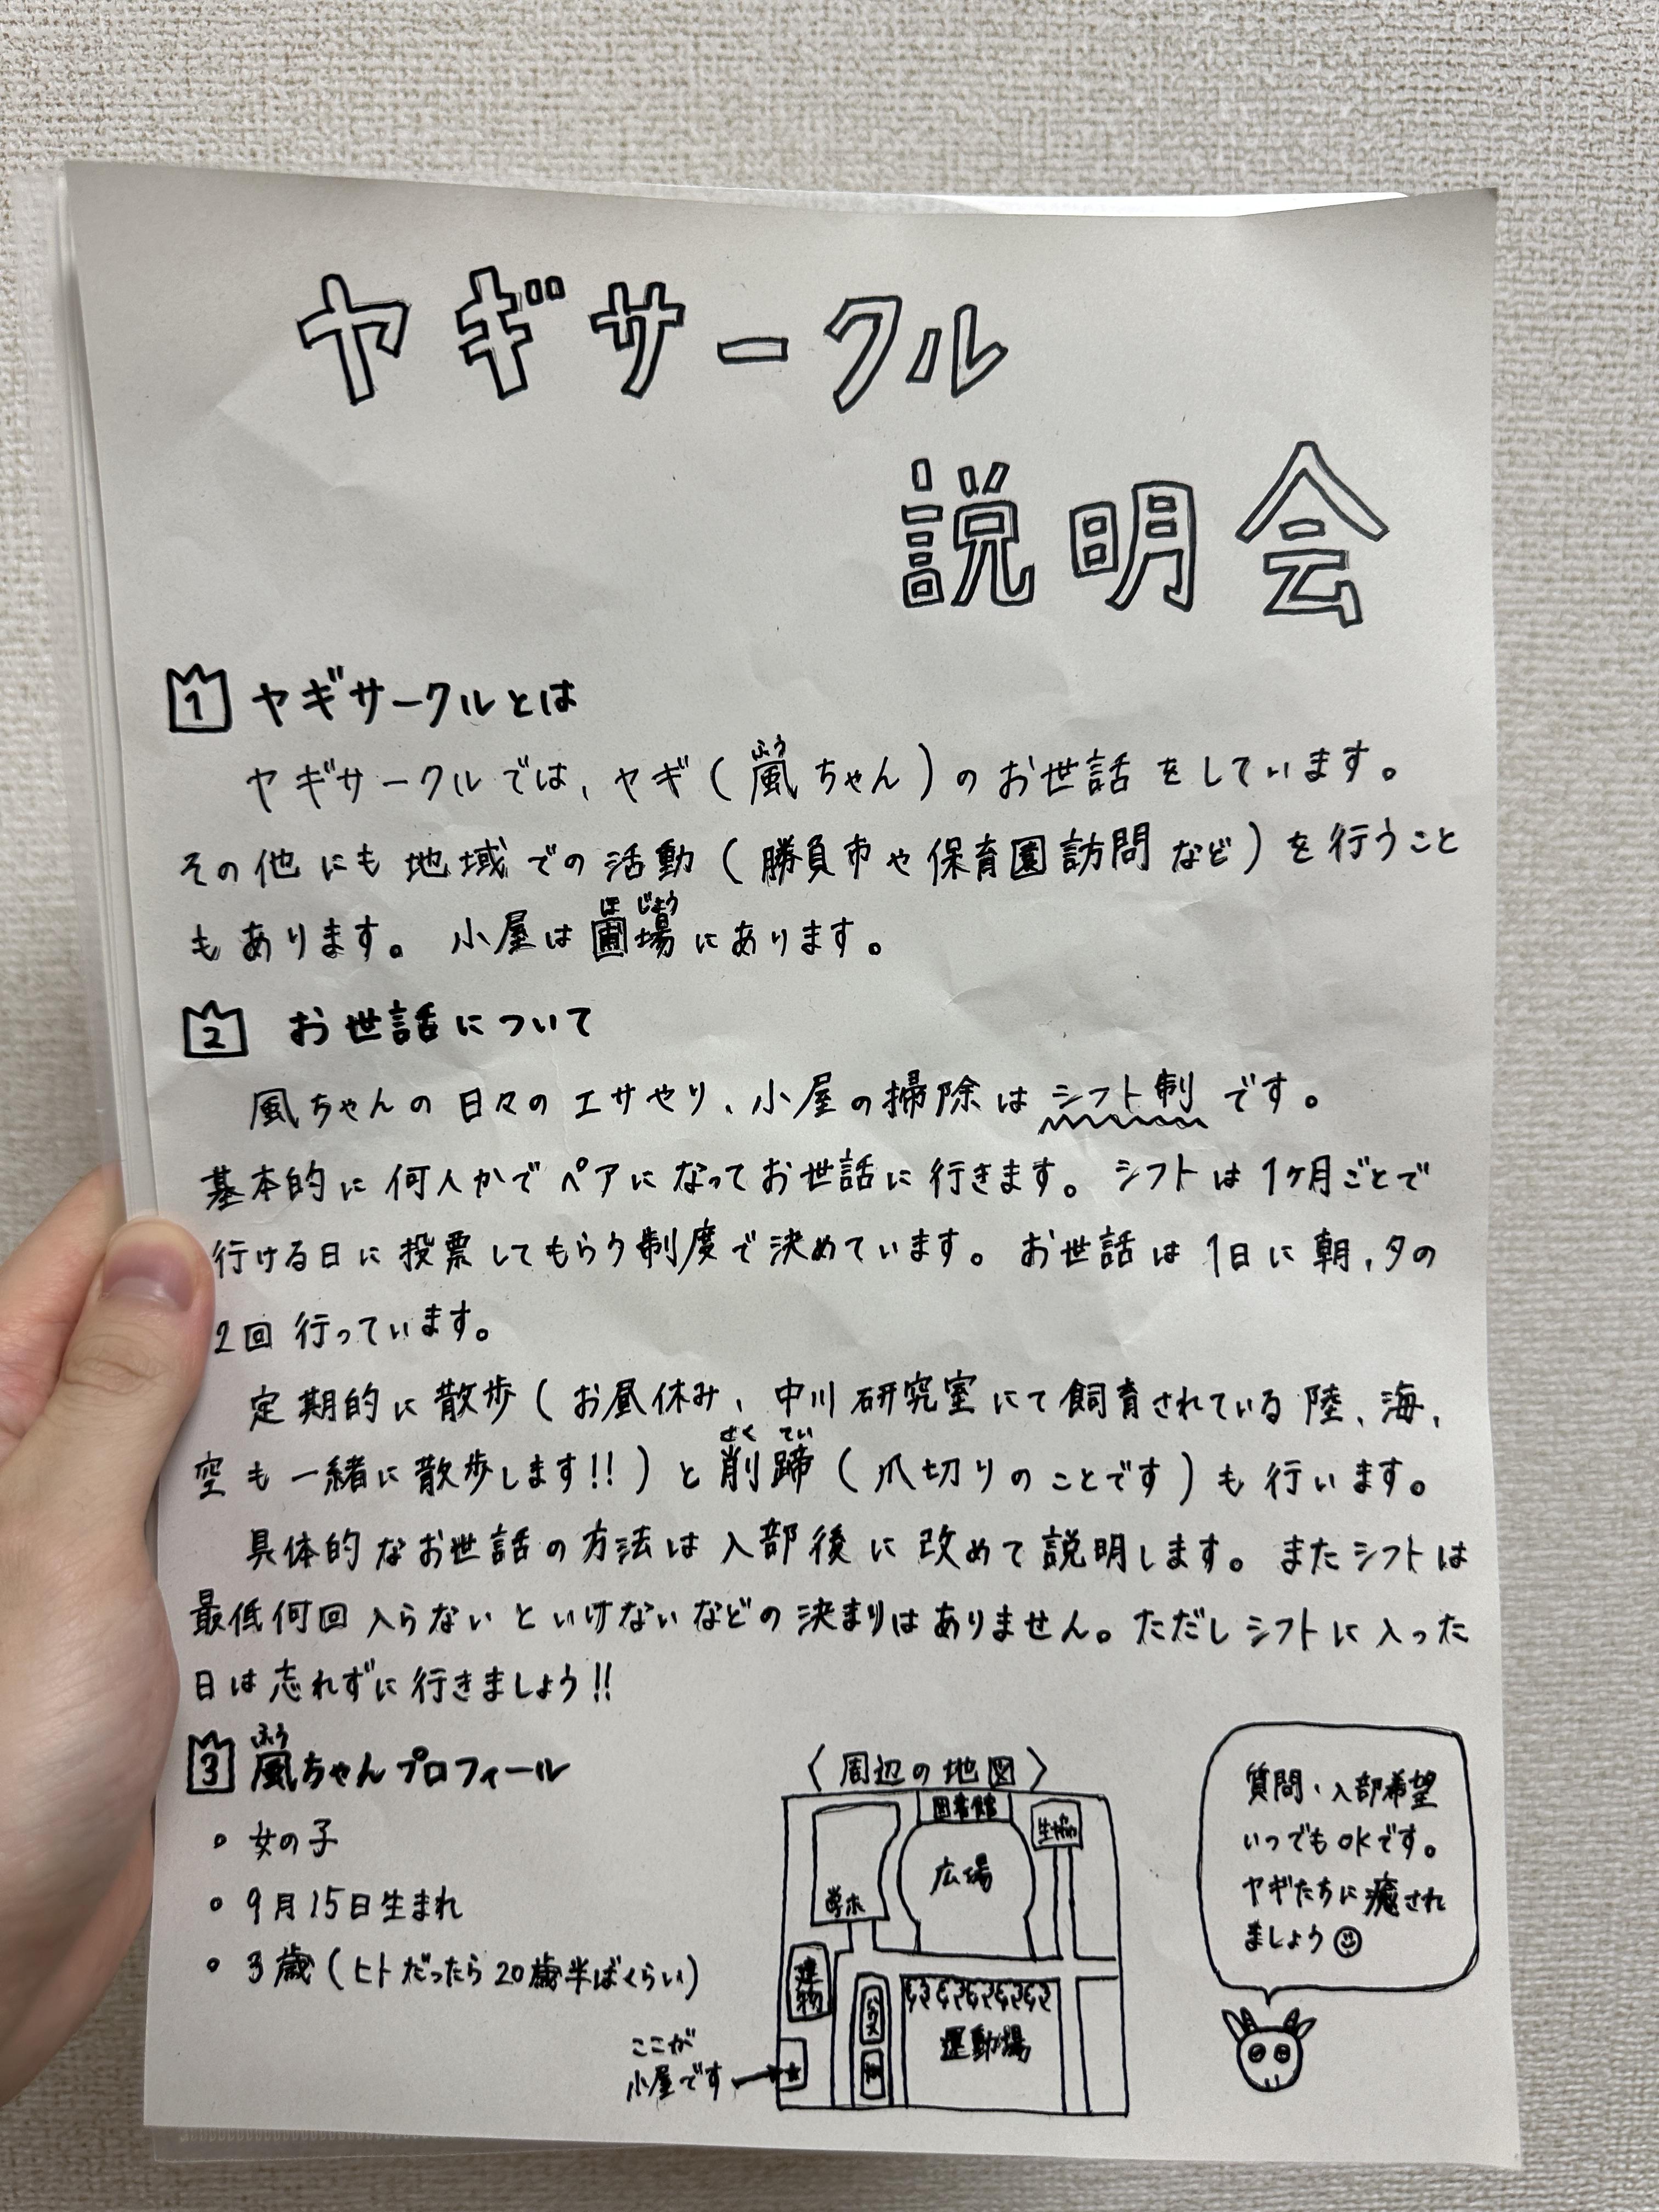 ヤギサークル
説明会
1 ヤギサークルとは
ふう
ヤギサークルでは、ヤギ(嵐ちゃん)のお世話をしています。
その他にも地域での活動(勝負市や保育園訪問など)を行うこと
ほじょう
もあります。小屋は圃場にあります。
2 お世話について
風ちゃんの日々のエサやり、小屋の掃除はシフト制です。
基本的に何人かでペアになってお世話に行きます。シフトは1ヶ月ごとで
行ける日に投票してもらう制度で決めています。お世話は1日に朝、夕の
2回行っています。
定期的に散歩(お昼休み、中川研究室にて飼育されている陸、海、
さくてい
空も一緒に散歩します!!)と削蹄(爪切りのことです)も行います。
具体的なお世話の方法は入部後に改めて説明します。またシフトは
最低何回入らないといけないなどの決まりはありません。ただしシフトに入った
日は忘れずに行きましょう!!
ふう
3 嵐ちゃんプロフィール
• 女の子
• 9月15日生まれ
• 3歳(ヒトだったら20歳半ばくらい)
〈周辺の地図〉
図書館
生協
広場
学ホ
建物
バス
運動場
ここが
小屋です→
質問・入部希望
いつでもOKです。
ヤギたちに癒され
ましょう